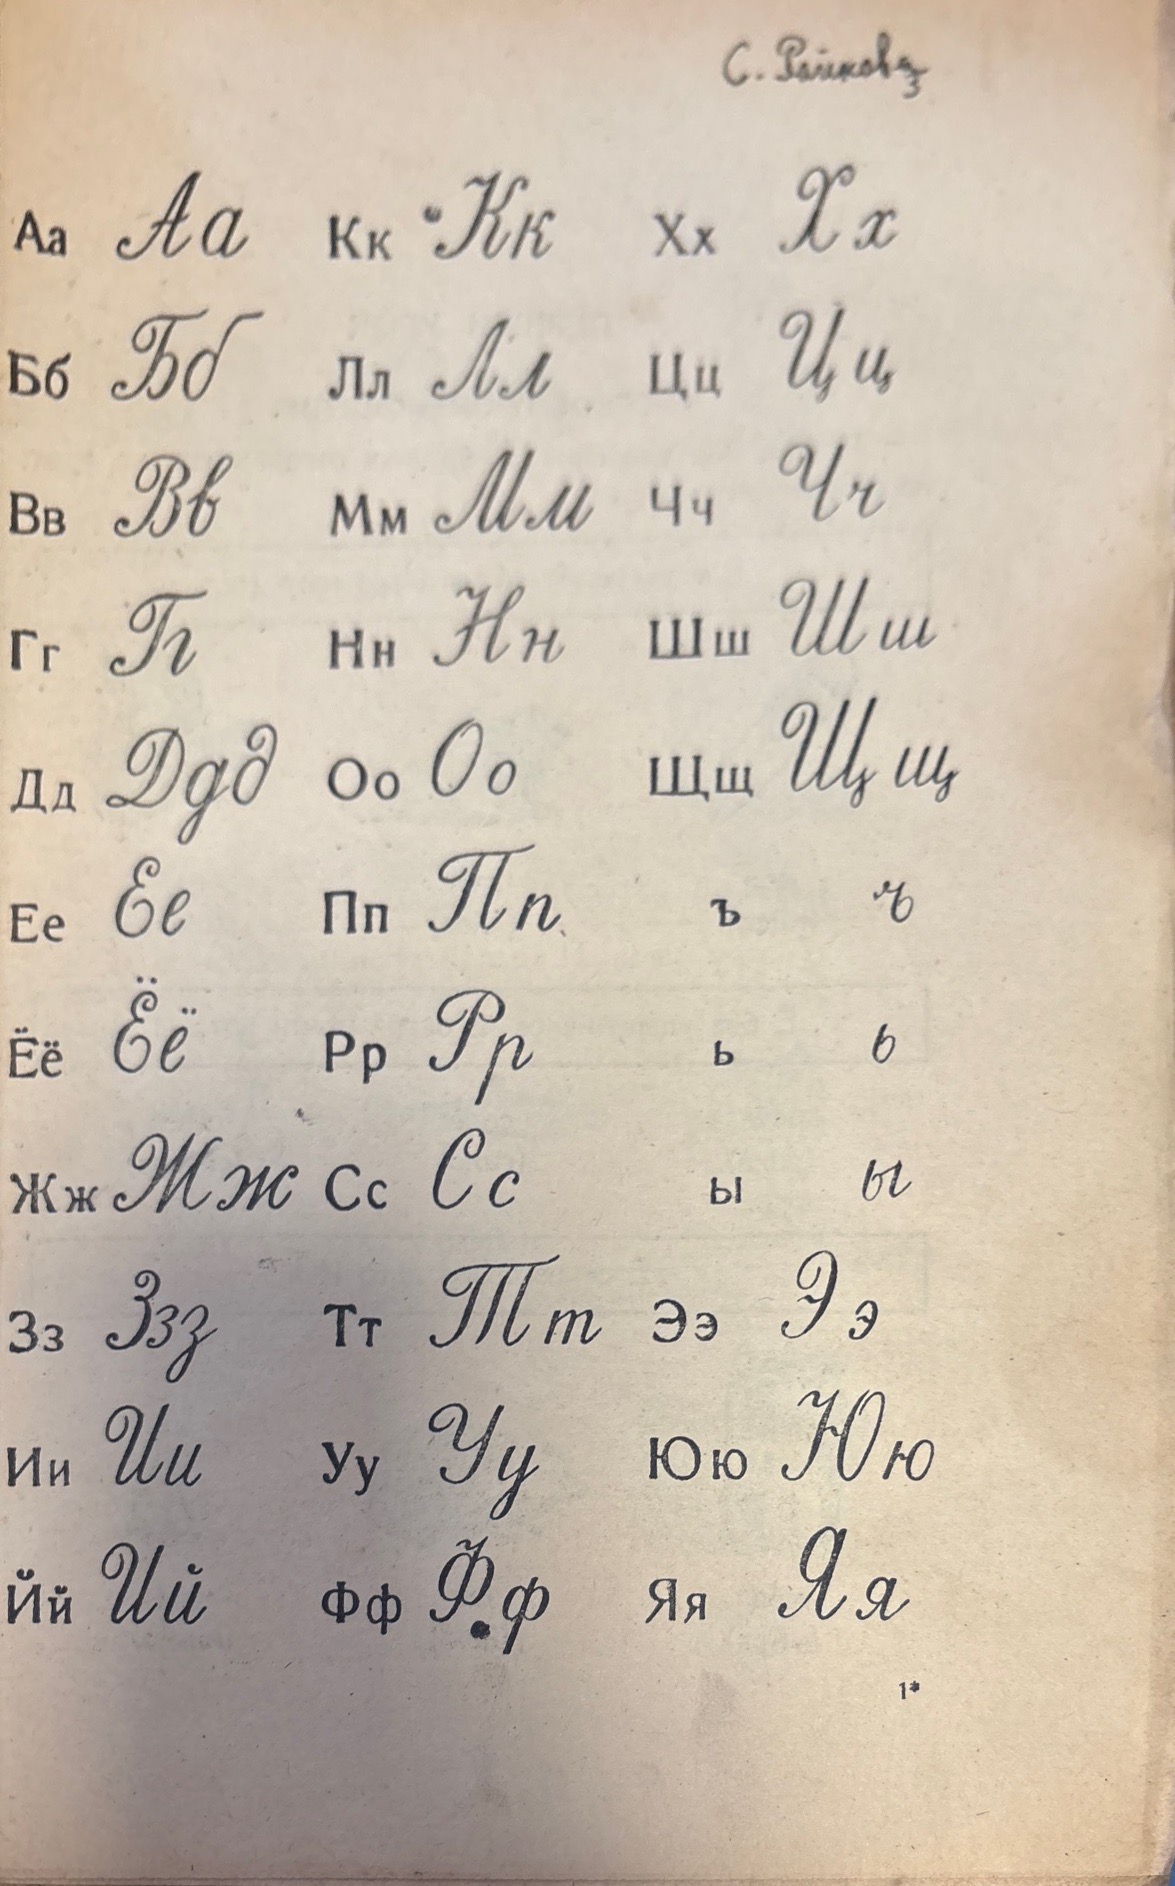 С. Райкова
Аа Аа Кк Кк Хх Хх
Бб Бб Лл Лл Цц Цц
Вв Вв Мм Мм Чч Чч
Гг Гг Нн Нн Шш Шш
Дд Ддд Оо Оо Щщ Щщ
Ее Ее Пп Пп ъ ъ
Ёё Ёё Рр Рр ь ь
Жж Жж Сс Сс ы ы
Зз Ззз Тт Тт Ээ Ээ
Ии Ии Уу Уу Юю Юю
Йй Ий Фф Фф Яя Яя
1*